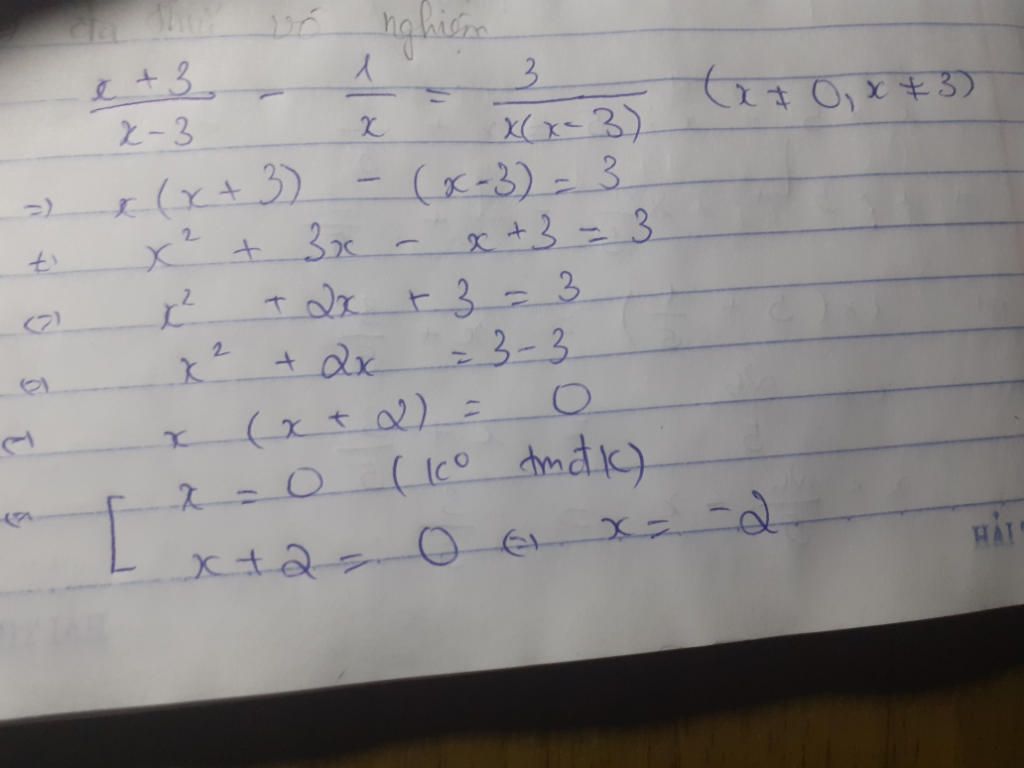 đa thức vô nghiệm
x + 3 / x - 3 - 1 / x = 3 / x(x - 3) (x ≠ 0, x ≠ 3)
=> x (x + 3) - (x - 3) = 3
x² + 3x - x + 3 = 3
<=> x² + 2x + 3 = 3
<=> x² + 2x = 3 - 3
<=> x (x + 2) = 0
<=> [ x = 0 (k° tmđk)
x + 2 = 0 <=> x = -2
HẢI